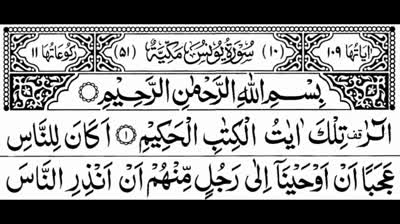 اٰیاتُهَا ١٠٩ (١٠) سُوْرَةُ یُوْنُسَ مَكِّیَّةٌ (٥١) رُكُوْعَاتُهَا ١١
بِسْمِ اللّٰهِ الرَّحْمٰنِ الرَّحِیْمِ
الٓرٰ قف تِلْكَ اٰیٰتُ الْكِتٰبِ الْحَكِیْمِ ١ اَكَانَ لِلنَّاسِ
عَجَبًا اَنْ اَوْحَیْنَاۤ اِلٰی رَجُلٍ مِّنْهُمْ اَنْ اَنْذِرِ النَّاسَ